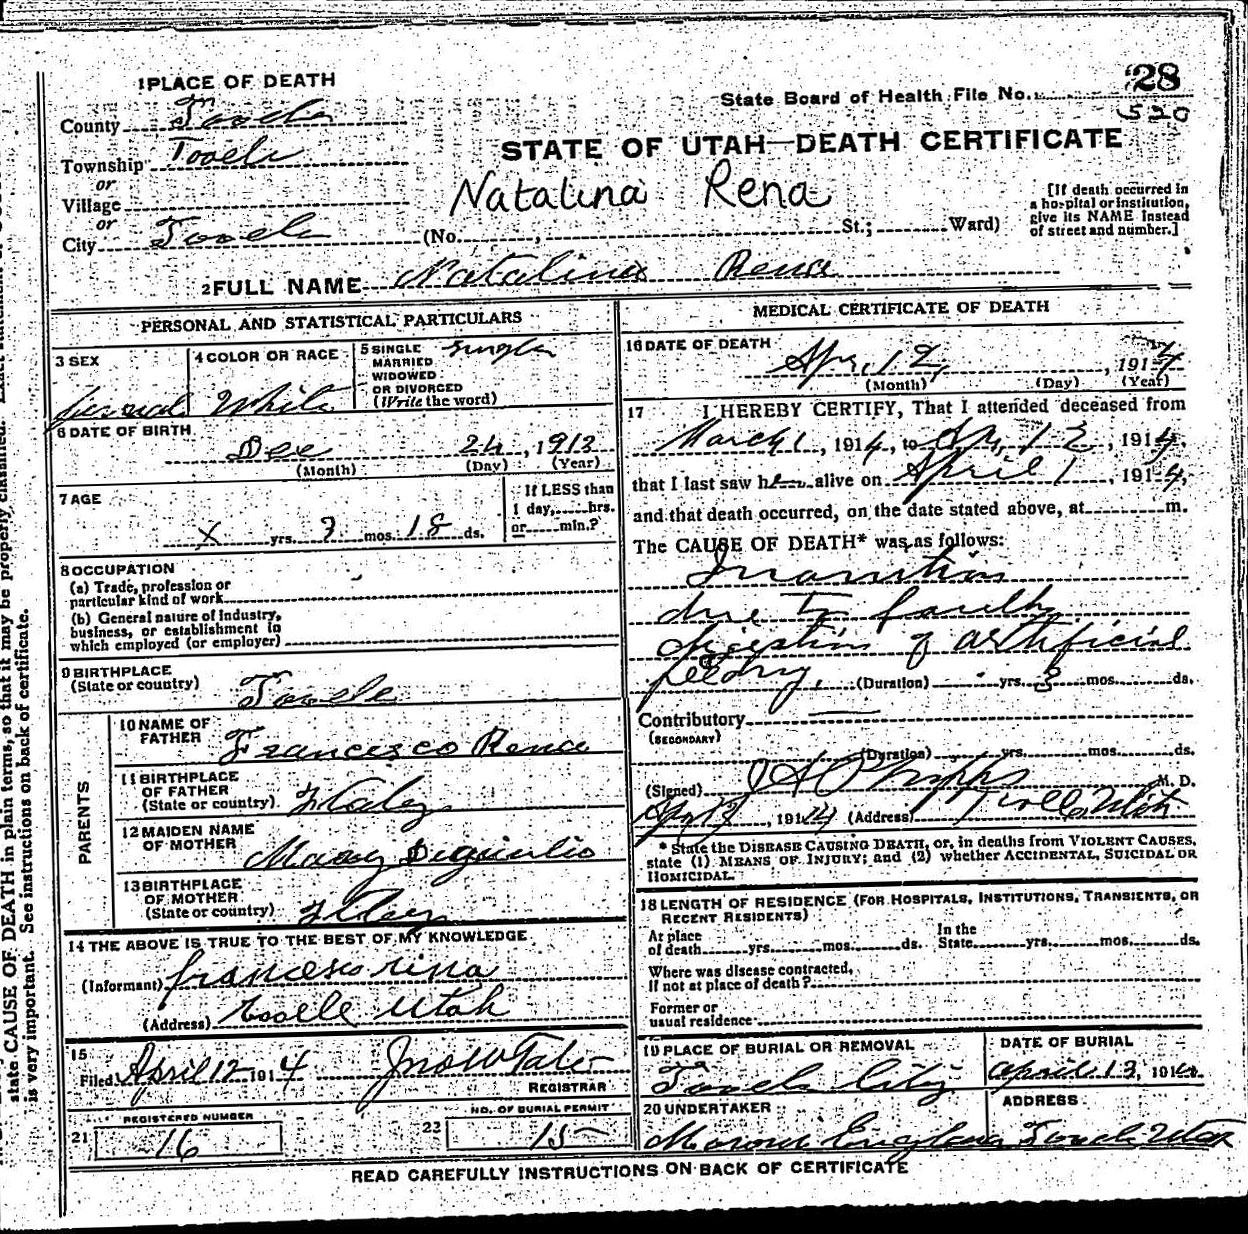 1 PLACE OF DEATH
28
State Board of Health File No.
520
County Tooele
STATE OF UTAH—DEATH CERTIFICATE
Township Tooele
or
Village
or
City Tooele (No. , St.; Ward)
Natalina Rena
[If death occurred in
a hospital or institution,
give its NAME instead
of street and number.]
2 FULL NAME Natalina Rena
PERSONAL AND STATISTICAL PARTICULARS
3 SEX
female
4 COLOR OR RACE
White
5 SINGLE
MARRIED
WIDOWED
OR DIVORCED
(Write the word)
Single
6 DATE OF BIRTH
Dec 24, 1913
(Month) (Day) (Year)
7 AGE
x yrs. 3 mos. 18 ds.
If LESS than
1 day, hrs.
or min.?
8 OCCUPATION
(a) Trade, profession or
particular kind of work
(b) General nature of industry,
business, or establishment in
which employed (or employer)
9 BIRTHPLACE
(State or country) Tooele
PARENTS
10 NAME OF
FATHER Francesco Rena
11 BIRTHPLACE
OF FATHER
(State or country) Italy
12 MAIDEN NAME
OF MOTHER Mary
13 BIRTHPLACE
OF MOTHER
(State or country) Italy
14 THE ABOVE IS TRUE TO THE BEST OF MY KNOWLEDGE
(Informant) francesco rina
(Address) Tooele Utah
15
Filed April 12 1914 Jno W Tate
REGISTRAR
REGISTERED NUMBER
21 16
NO. OF BURIAL PERMIT
22 15
MEDICAL CERTIFICATE OF DEATH
16 DATE OF DEATH
Apr. 12, 1914
(Month) (Day) (Year)
17 I HEREBY CERTIFY, That I attended deceased from
March 1, 1914, to Ap. 12, 1914,
that I last saw her alive on April 1, 1914,
and that death occurred, on the date stated above, at m.
The CAUSE OF DEATH* was as follows:
Inanition
due to faulty
digestion of artificial
feeding. (Duration) yrs. 3 mos. ds.
Contributory
(SECONDARY)
(Duration) yrs. mos. ds.
(Signed) J A Phipps M. D.
, 1914 (Address) Tooele Utah
* State the DISEASE CAUSING DEATH, or, in deaths from VIOLENT CAUSES,
state (1) MEANS OF INJURY; and (2) whether ACCIDENTAL, SUICIDAL OR
HOMICIDAL.
18 LENGTH OF RESIDENCE (FOR HOSPITALS, INSTITUTIONS, TRANSIENTS, OR
RECENT RESIDENTS)
At place
of death yrs. mos. ds.
In the
State yrs. mos. ds.
Where was disease contracted,
If not at place of death?
Former or
usual residence
19 PLACE OF BURIAL OR REMOVAL
Tooele City
DATE OF BURIAL
April 13, 1914
20 UNDERTAKER
Moroni England
ADDRESS
Tooele Utah
READ CAREFULLY INSTRUCTIONS ON BACK OF CERTIFICATE
state CAUSE OF DEATH in plain terms, so that it may be properly classified.
is very important. See instructions on back of certificate.